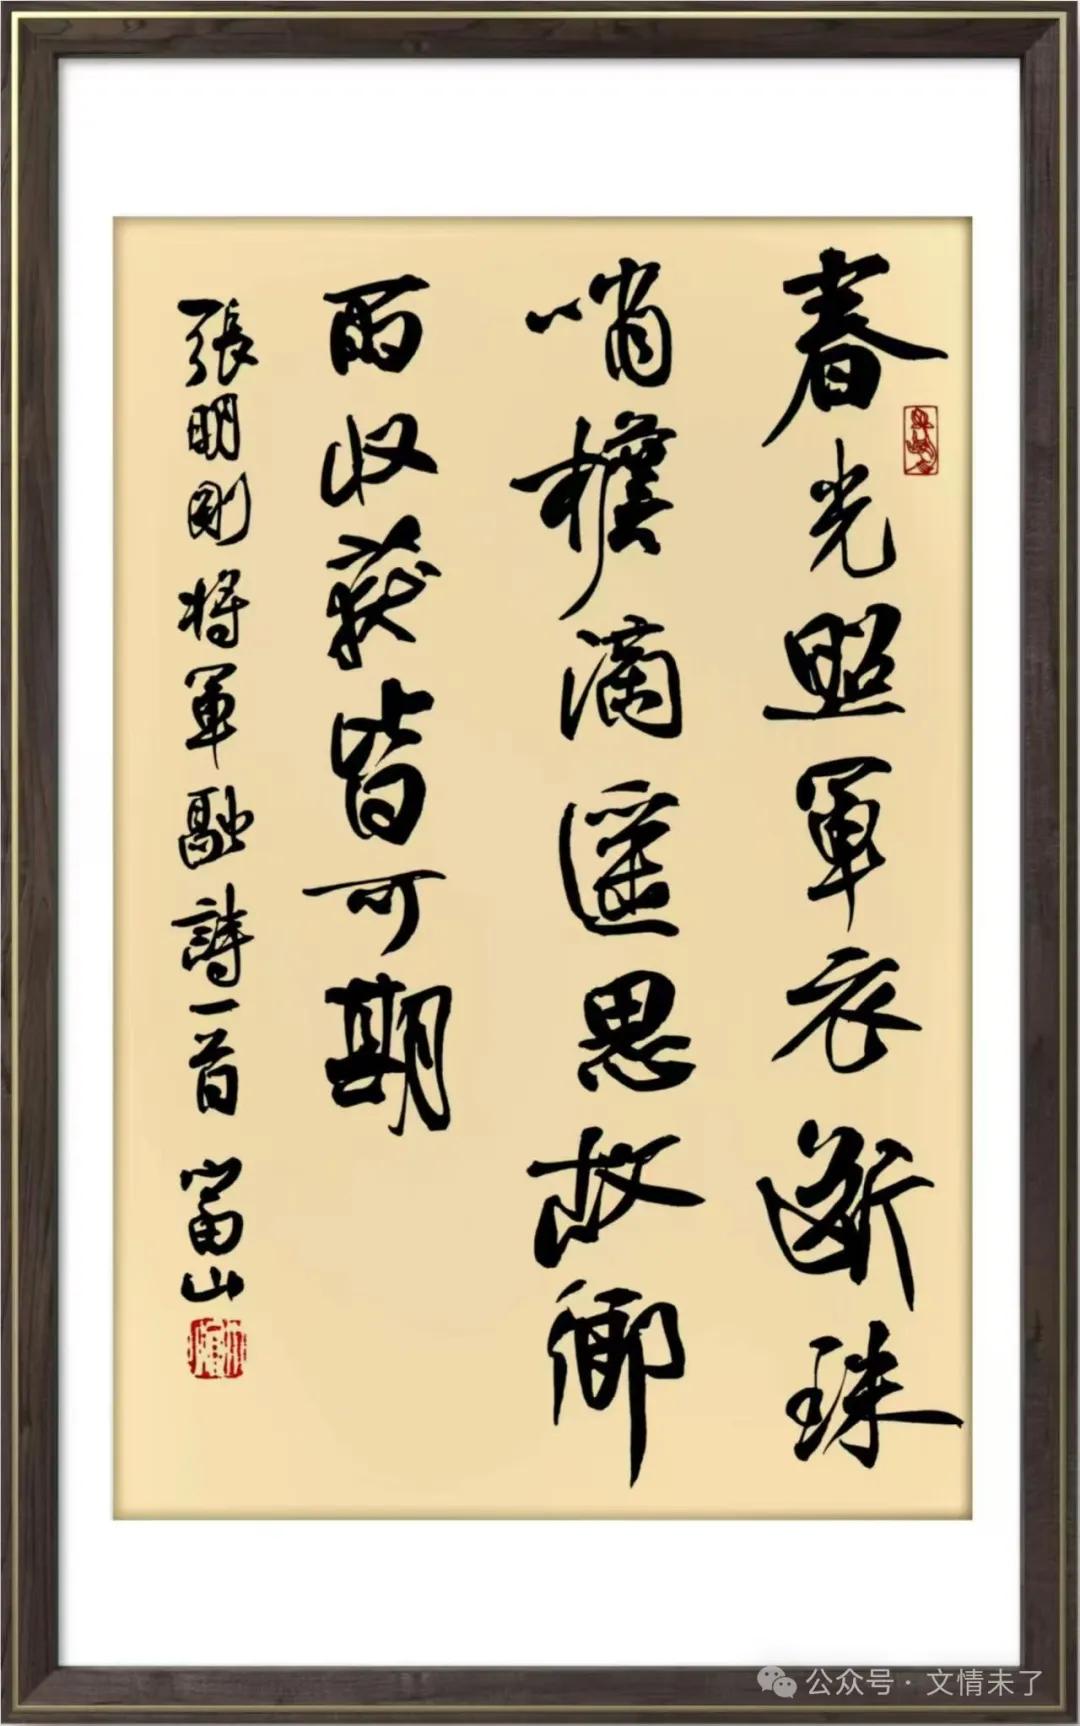 春光照軍衣断珠
哨樓滴遥思故鄉
雨收获皆可期
張明剛将軍融詩一首 富山
公众号·文情未了